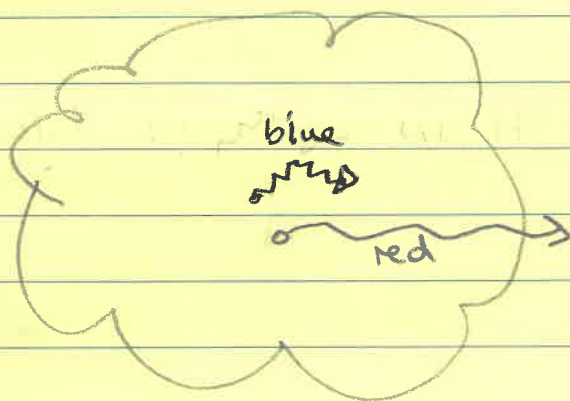 blue
red